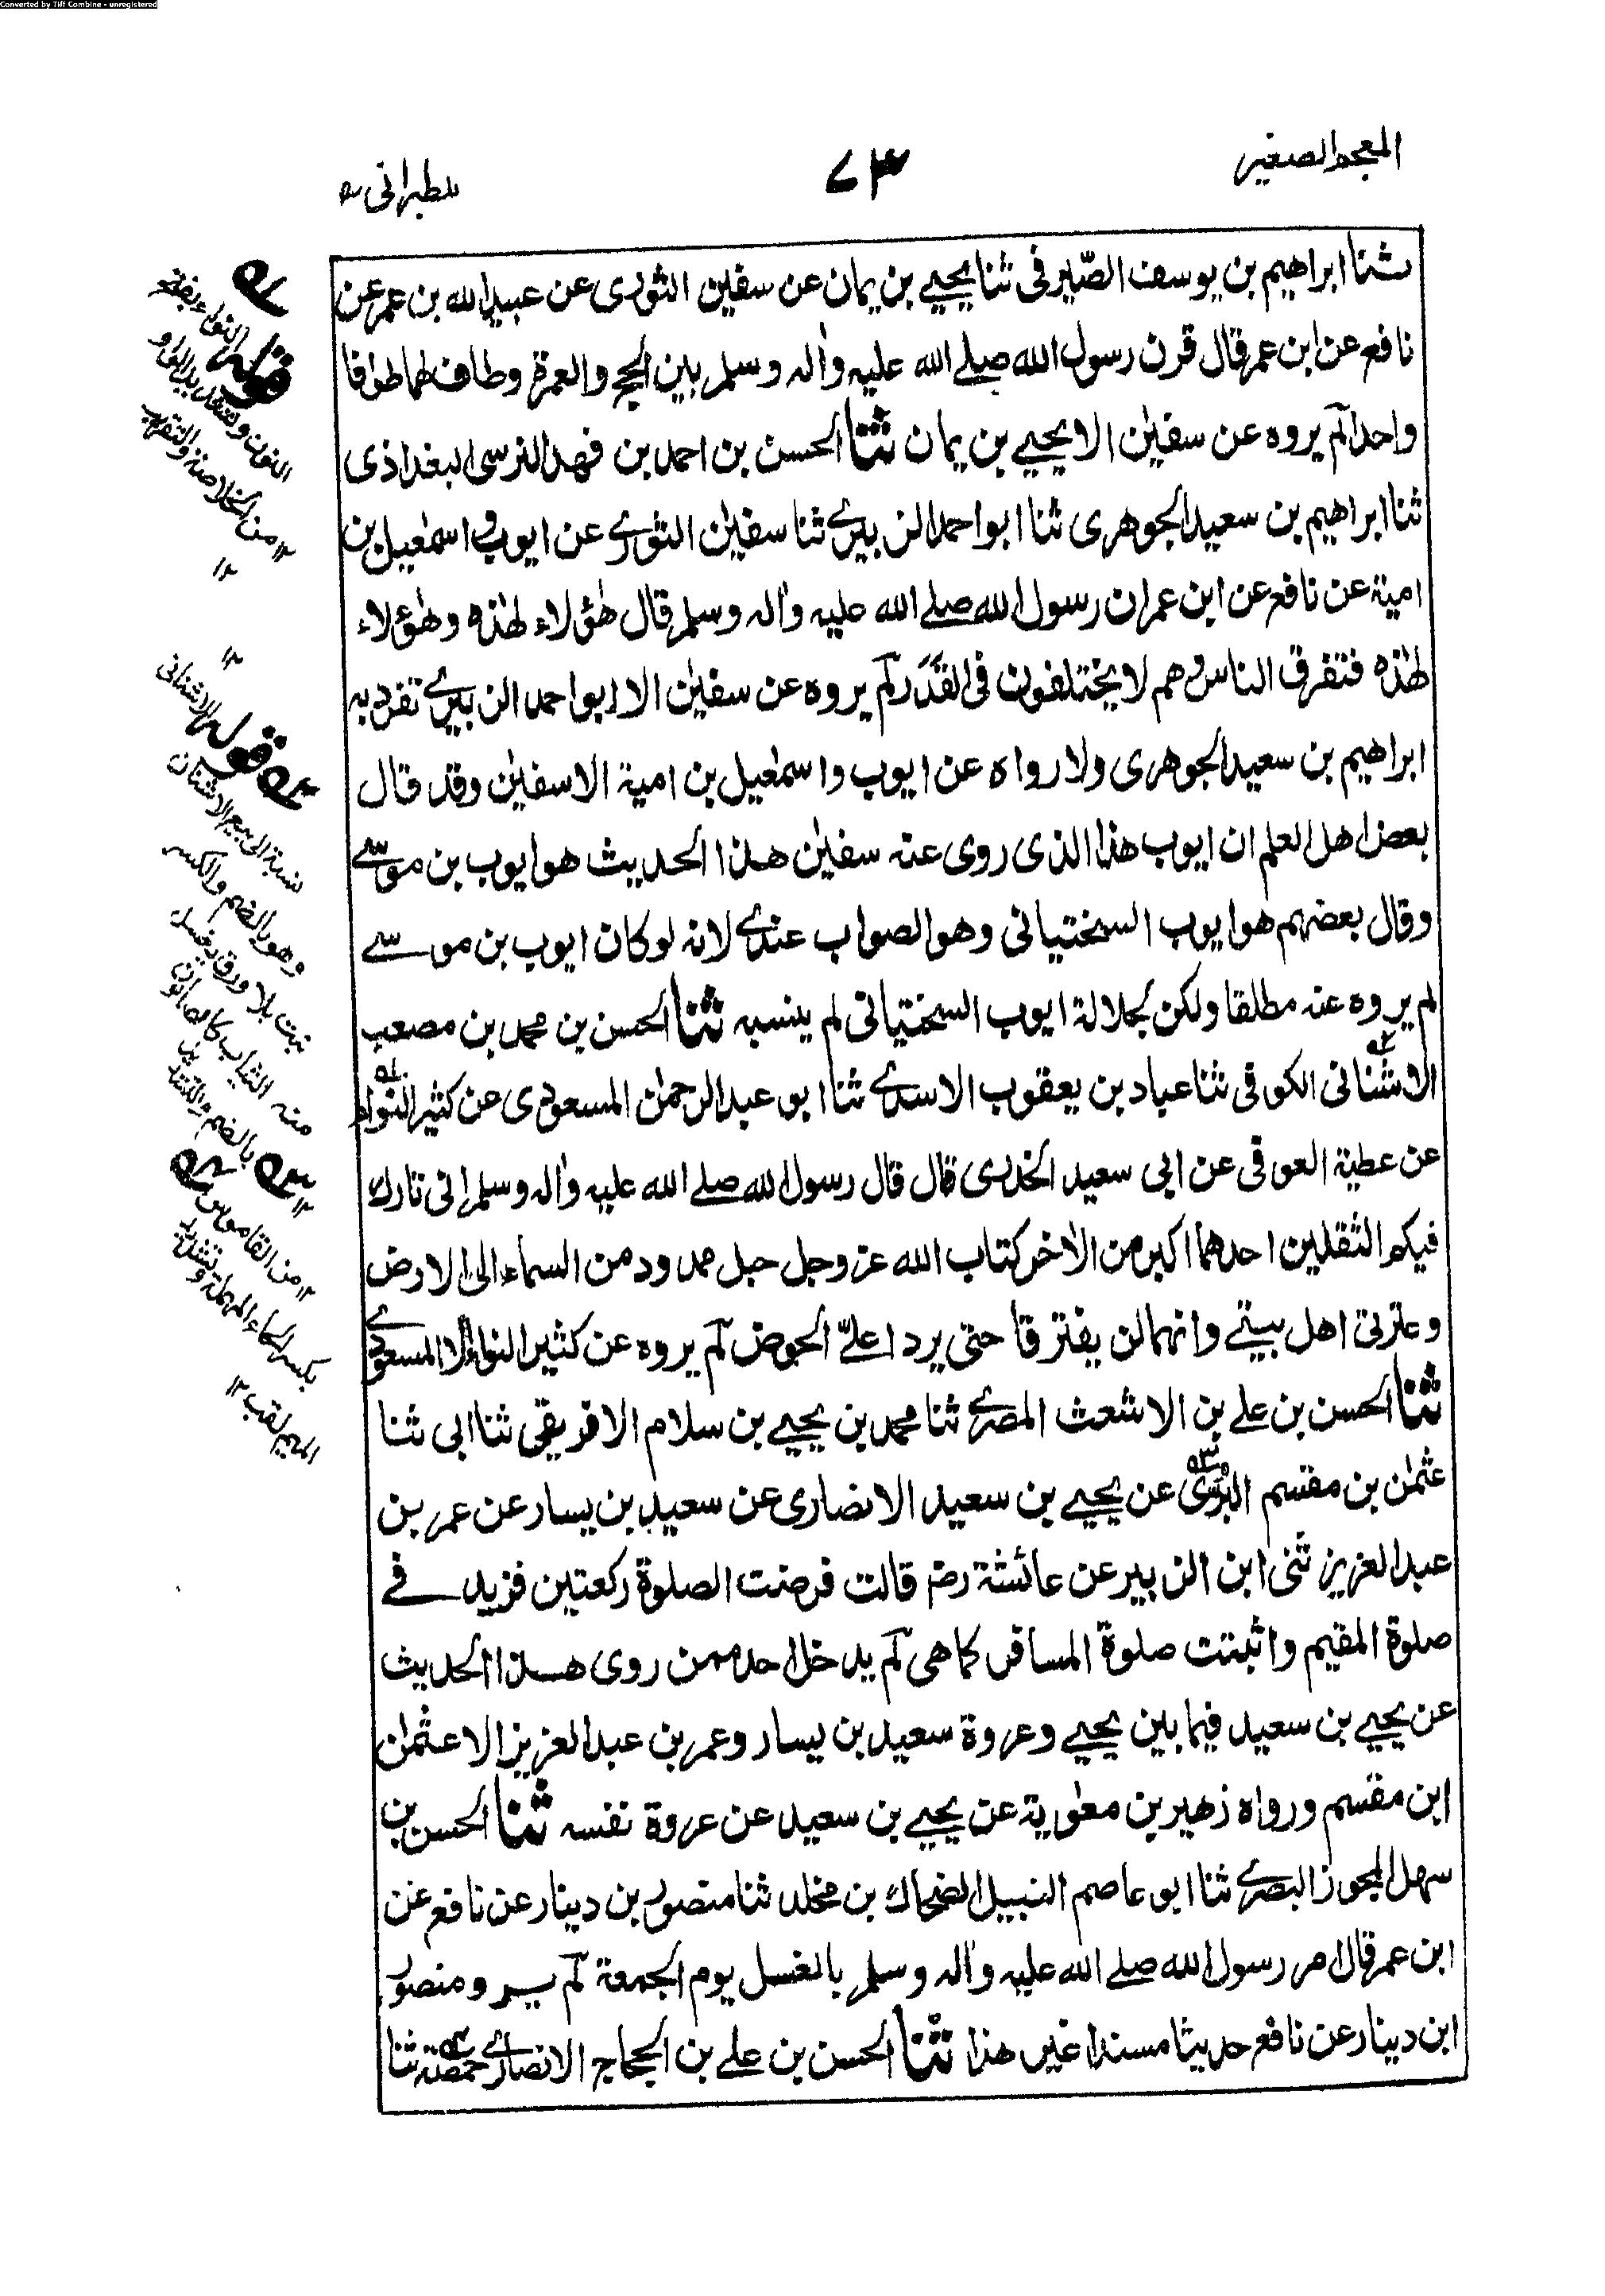 Converted by Tiff Combine - unregistered
المعجم الصغير
٧٣
للطبراني
ثنا ابراهيم بن يوسف الصيرفى ثنا يحيى بن يمان عن سفين الثورى عن عبيد الله بن عمر عن
نافع عن ابن عمر قال قرن رسول الله صلى الله عليه واٰله وسلم بين الحج والعمرة وطاف لهما طوافا
واحدا لم يروه عن سفيٰن الا يحيى بن يمان ثنا الحسن بن احمد بن فهد النرسى البغداذى
ثنا ابراهيم بن سعيد الجوهرى ثنا ابو احمد الزبيرى ثنا سفيٰن الثورى عن ايوب و اسمٰعيل بن
امية عن نافع عن ابن عمر ان رسول الله صلى الله عليه واٰله وسلم قال هٰؤلاء لهٰذه وهٰؤلاء
لهٰذه فتفرق الناس وهم لا يختلفون فى القدر لم يروه عن سفيٰن الا ابو احمد الزبيرى تفرد به
ابراهيم بن سعيد الجوهرى ولا رواه عن ايوب واسمٰعيل بن امية الا سفيٰن وقد قال
بعض اهل العلم ان ايوب هذا الذى روى عنه سفيٰن هذا الحديث هو ايوب بن موسى
وقال بعضهم هو ايوب السختيانى وهو الصواب عندى لانه لو كان ايوب بن موسى
لم يروه عنه مطلقا ولكن لجلالة ايوب السختيانى لم ينسبه ثنا الحسن بن محمد بن مصعب
الاشنانى الكوفى ثنا عباد بن يعقوب الاسدى ثنا ابو عبد الرحمٰن المسعودى عن كثير النواء
عن عطية العوفى عن ابى سعيد الخدرى قال قال رسول الله صلى الله عليه واٰله وسلم انى تارك
فيكم الثقلين احدهما اكبر من الاٰخر كتاب الله عز وجل حبل ممدود من السماء الى الارض
وعترتى اهل بيتى وانهما لن يفترقا حتى يردا علىّ الحوض لم يروه عن كثير النواء الا المسعودى
ثنا الحسن بن على بن الاشعث المصرى ثنا محمد بن يحيى بن سلام الافريقى ثنا ابى ثنا
عثمٰن بن مقسم البرسى عن يحيى بن سعيد الانصارى عن سعيد بن يسار عن عمر بن
عبد العزيز ثنى ابن الزبير عن عائشة رض قالت فرضت الصلوة ركعتين فزيد فى
صلوة المقيم واثبتت صلوة المسافر كما هى لم يدخل احد ممن روى هذا الحديث
عن يحيى بن سعيد فيما بين يحيى وعروة سعيد بن يسار وعمر بن عبد العزيز الا عثمٰن
ابن مقسم ورواه زهير بن معٰوية عن يحيى بن سعيد عن عروة نفسه ثنا الحسن بن
سهل المجوز البصرى ثنا ابو عاصم النبيل الضحاك بن مخلد ثنا منصور بن دينار عن نافع عن
ابن عمر قال امر رسول الله صلى الله عليه واٰله وسلم بالغسل يوم الجمعة لم يرو منصور
ابن دينار عن نافع حديثا مسندا غير هذا ثنا الحسن بن على بن الحجاج الانصارى حمصة ثنا
قوله النواء بفتح
النون وتشديد الواو
١٢ من الخلاصة والتقريب
١٢
١٢
قوله الاشنانى
نسبة الى بيع الاشنان
وهو بالضم والكسر
نبت بلا ورق يغسل
منه الثياب كالصابون
١٢ بالضم والتشديد
١٢ من القاموس
بكسر الحاء المهملة وتشديد
الميم لقب ١٢